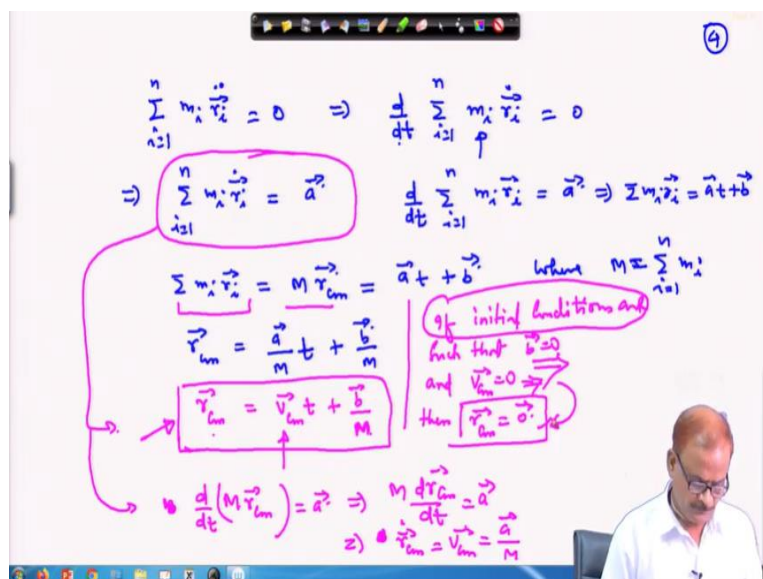 ④
\sum_{i=1}^{n} m_i \ddot{\vec{r}}_i = 0 ⇒ \frac{d}{dt} \sum_{i=1}^{n} m_i \dot{\vec{r}}_i = 0
⇒ \sum_{i=1}^{n} m_i \dot{\vec{r}}_i = \vec{a} \frac{d}{dt} \sum_{i=1}^{n} m_i \vec{r}_i = \vec{a} ⇒ \sum m_i \vec{r}_i = \vec{a}t + \vec{b}
\sum m_i \vec{r}_i = M \vec{r}_{cm} = \vec{a}t + \vec{b} where M = \sum_{i=1}^{n} m_i
\vec{r}_{cm} = \frac{\vec{a}}{M} t + \frac{\vec{b}}{M}
\vec{r}_{cm} = \vec{v}_{cm} t + \frac{\vec{b}}{M}
If initial conditions are
such that \vec{b} = 0
and \vec{v}_{cm} = 0 ⇒
then \vec{r}_{cm} = \vec{0}
\frac{d}{dt} (M \vec{r}_{cm}) = \vec{a} ⇒ M \frac{d\vec{r}_{cm}}{dt} = \vec{a}
⇒ \dot{\vec{r}}_{cm} = \vec{v}_{cm} = \frac{\vec{a}}{M}